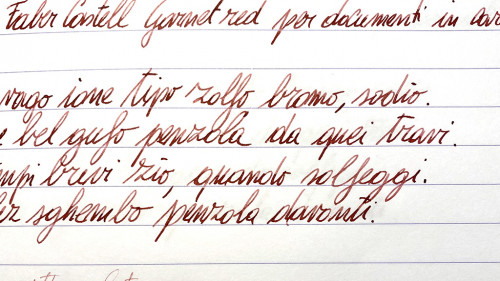 Faber Castell Garnet red per documenti in
vago ione tipo zolfo bromo, sodio.
bel gufo penzola da quei travi.
brevi zio, quando solfeggi.
sghembo penzola davanti.